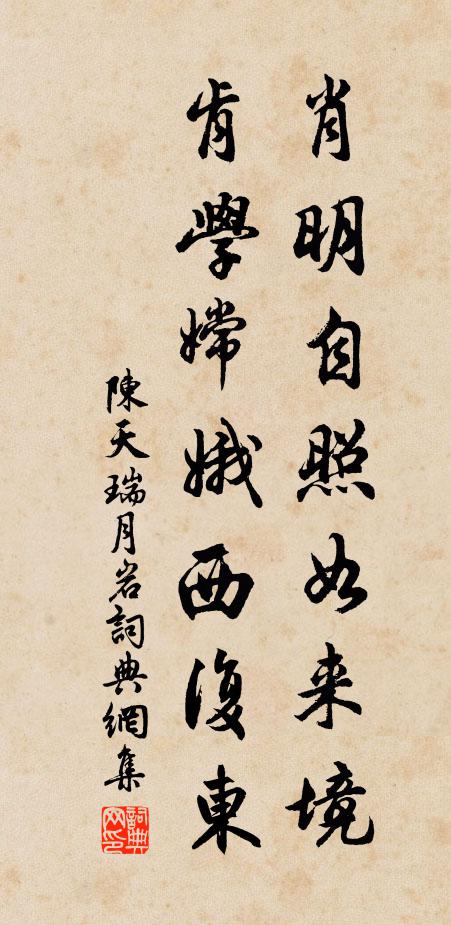 肖明自照如来境
肯學嫦娥西復東
陳天瑞月岩詞典網集
詞典網印